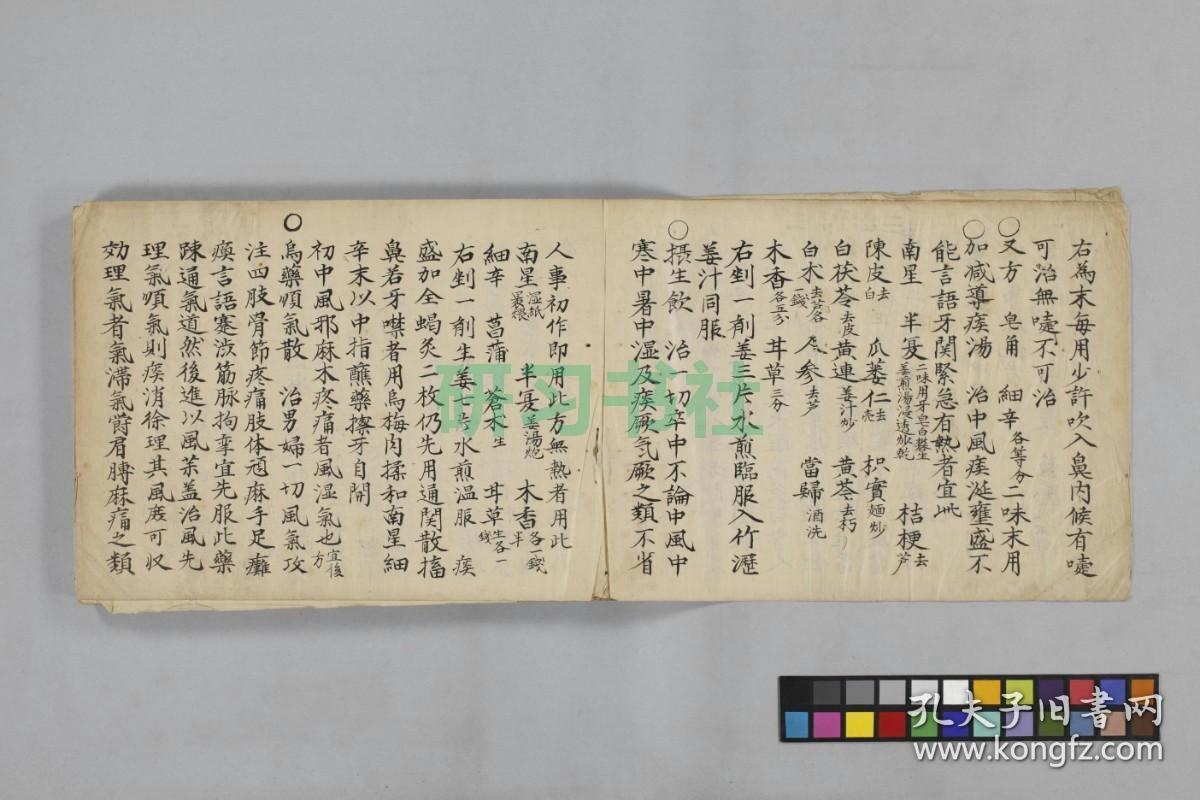 右為末每用少許吹入鼻内候有嚏
可治無嚏不可治
○又方 皂角 細辛各等分二味末用
○加减導痰湯 治中風痰涎壅盛不
能言語牙関緊急有熱者宜此
南星 半夏二味用牙皂白礬生姜煎湯浸透晾乾 桔梗去芦
陳皮去白 瓜蒌仁去壳 枳實麵炒
白茯苓去皮 黄連姜汁炒 黄芩去朽
白朮去芦各錢 人参去芦 當歸酒洗
木香各五分 甘草三分
右剉一劑姜三片水煎臨服入竹瀝
姜汁同服
○摂生飲 治一切卒中不論中風中
寒中暑中湿及痰厥気厥之類不省
人事初作即用此方無熱者用此
南星湿紙裹煨 半夏姜湯炮 木香各一錢半
細辛 菖蒲 蒼朮生 甘草生各一錢
右剉一劑生姜七片水煎温服 痰
盛加全蝎炙二枚仍先用通関散搐
鼻若牙噤者用烏梅肉揉和南星細
辛末以中指蘸藥擦牙自開
初中風邪麻木疼痛者風湿氣也宜後方
○烏藥順氣散 治男婦一切風氣攻
注四肢骨節疼痛肢体頑麻手足癱
瘓言語蹇渋筋脉拘挛宜先服此藥
踈通氣道然後進以風茱盖治風先
理氣氣順則痰消徐理其風庶可収
効理氣者氣滞氣欝肩膊麻痛之類
研习书社
孔夫子旧书网
www.kongfz.com